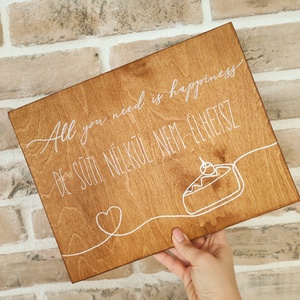 All you need is happiness
DE SÜTI NÉLKÜL NEM ÉLHETSZ